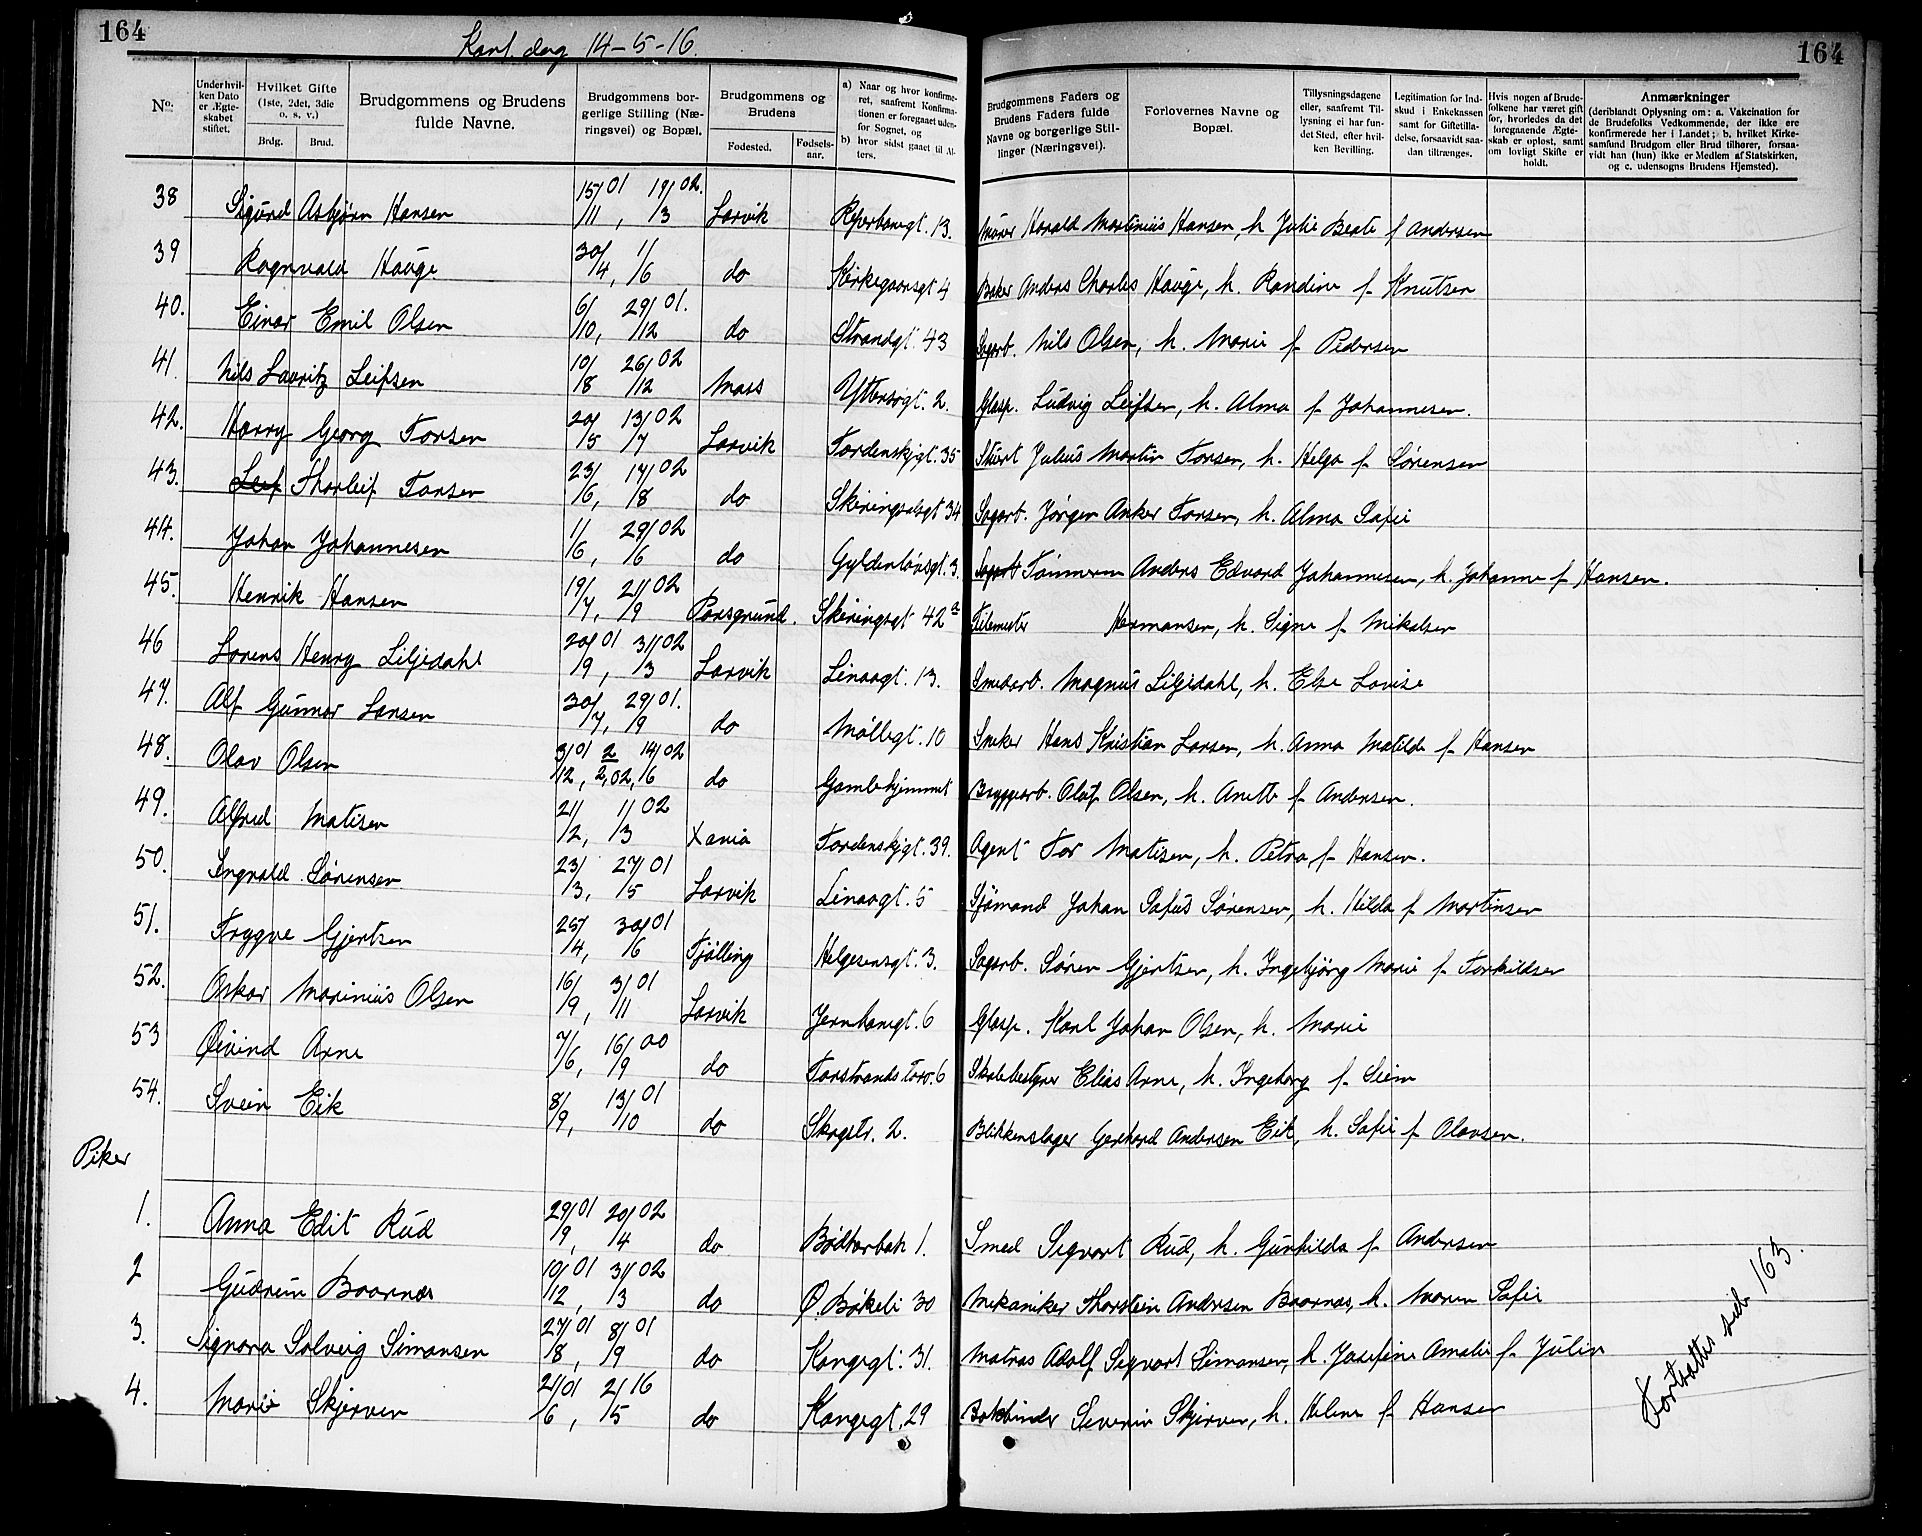 164
Konf. dag 14-5-16.
164
No.
Under hvilken Dato er Ægteskabet stiftet.
Hvilket Gifte (1ste, 2det, 3die o. s. v.)
Brdg.
Brud.
Brudgommens og Brudens fulde Navne.
Brudgommens borgerlige Stilling (Næringsvei) og Bopæl.
Brudgommens og Brudens
Fødested.
Fødselsaar.
a) Naar og hvor konfirmeret, saafremt Konfirmationen er foregaaet udenfor Sognet, og
b) hvor sidst gaaet til Alters.
Brudgommens Faders og Brudens Faders fulde Navne og borgerlige Stillinger (Næringsvei).
Forlovernes Navne og Bopæl.
Tillysningsdagene eller, saafremt Tillysning ei har fundet Sted, efter hvilken Bevilling.
Legitimation for Indskud i Enkekassen samt for Giftetilladelse, forsaavidt saadan tiltrænges.
Hvis nogen af Brudefolkene har været gift før, hvorledes da det foregaaende Ægteskab er opløst, samt om lovligt Skifte er holdt.
Anmærkninger
(deriblandt Oplysning om: a. Vakcination for de Brudefolks Vedkommende, der ikke ere konfirmerede her i Landet; b. hvilket Kirkesamfund Brudgom eller Brud tilhører, forsaavidt han (hun) ikke er Medlem af Statskirken, og c. udensogns Brudens Hjemsted).
38 Sigurd Asbjørn Hansen 15/11 01, 19/3 02. Larvik Reperbanegt. 13. Murer Harald Martinius Hansen, h. Julie Beate f. Andersen
39 Ragnvald Hauge 30/4, 1/6 do Kirkegaardsgt 4 Baker Anders Charles Hauge, h. Randine f. Knutsen
40. Einar Emil Olsen 6/10, 29/12 01. do Strandgt. 43 Sagarb. Nils Olsen, h. Marie f. Pedersen
41. Nils Lauritz Leifsen 10/8 26/12 02 Moss Yttersøgt. 2. Glasp. Ludvig Leifsen, h. Alma f. Johannesen.
42. Harry Georg Torsen 20/5 13/7 02 Larvik Tordenskjgt. 35 Stuert Julius Martin Torsen, h. Helga f. Sørensen
43. Leif Thorleif Torsen 23/6, 17/8 02 do Skiringsalsgt 34 Sagarb. Jørgen Anker Torsen, h. Alma Sofie
44. Johan Johannesen 1/6, 29/6 02 do Gyldenløvsgt. 3. Sagarb Tømmerm Anders Edvard Johannesen, h. Johanne f. Hansen.
45. Henrik Hansen 19/7, 21/9 02 Porsgrund. Skiringsgt 42a Hermansen, h. Signe f. Mikalsen
46 Lorens Henry Liljedahl 20/9 01, 31/3 02 Larvik Linaagt. 13. Smedarb. Magnus Liljedahl, h. Else Lovise
47. Alf Gunnar Larsen 30/7, 29/9 01. do Møllegt. 10 Sneker Hans Kristian Larsen, h. Anna Matilde f. Hansen
48. Olav Olsen 3/12 01, 2/2 02, 14/6 02 do Gamlehjemmet Bryggearb. Olaf Olsen, h. Anette f. Andersen.
49. Alfred Matisen 21/2, 1/3 02 Xania Tordenskjgt. 39. Agent Tor Matisen, h. Petra f. Hansen.
50. Ingvald Sørensen 23/3, 27/5 01 Larvik Linaagt. 5 Sjømand Johan Sofus Sørensen, h. Hilda f. Martinsen
51. Trygve Gjertsen 25/4, 30/6 01 Tjølling Helgesensgt. 3. Sagarb. Søren Gjertsen, h. Ingebjørg Marie f. Torkildsen
52. Oskar Marinius Olsen 16/9, 3/11 01 Larvik Jernbanegt. 6 Glasp. Karl Johan Olsen, h. Marie
53 Øivind Arne 7/6, 16/9 00 do Torstrands torv. 6 Skolebestyrer Elias Arne, h. Ingeborg f. Seim
54. Svein Eik 8/9, 13/10 01 do Skogstr. 2. Blikkenslager Gerhard Andersen Eik, h. Sofie f. Olavsen.
Piker
1. Anna Edit Rud 29/9 01, 20/4 02 do Bødkerbak 1. Smed Sigvart Rud, h. Gunhilda f. Andersen
2 Gudrun Baarnes 10/12 01, 31/3 02 do Ø. Bøkeli 30 Mekaniker Thorstein Andersen Baarnes, h. Maren Sofie
3. Signora Solveig Simonsen 27/8 01, 8/9 01 do Kongegt. 31. Matros Adolf Sigvart Simonsen, h. Josefine Amalie f. Julin
4. Marie Skjerven 21/6 01, 21/5 16 do Kongegt. 29 Bokbinder Severin Skjerven, h. Helene f. Hansen
Fortsættes side 163.